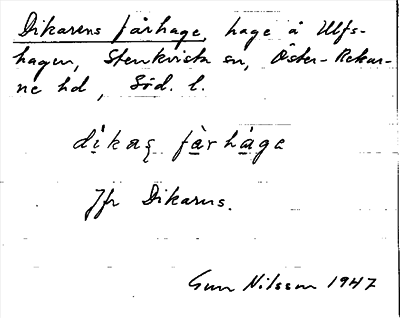 Dikarens fårhage, hage å Ulfs-
hagen, Stenkvista sn, Öster-Rekar-
ne hd, Söd. l.
dikas fàrhàge
Jfr Dikarens.
Gun Nilsson 1947